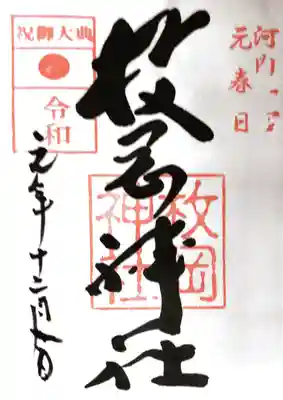 河内一宮
元春日
枚岡神社
枚岡
神社
祝御大典
令和
元年十二月 日